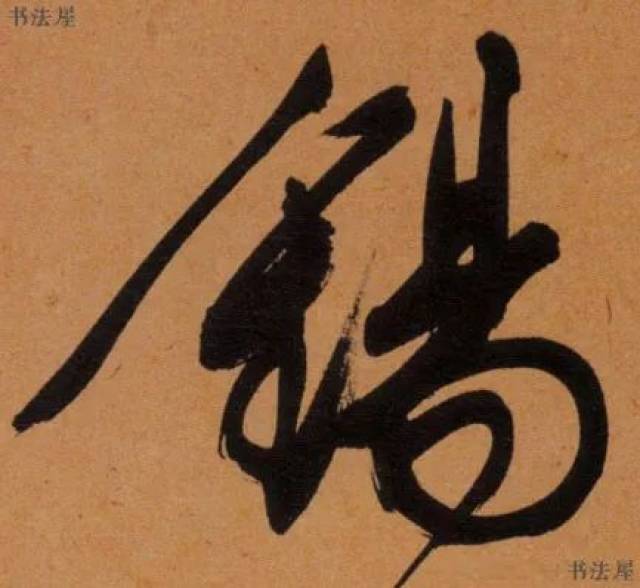 书法屋
錫
书法屋